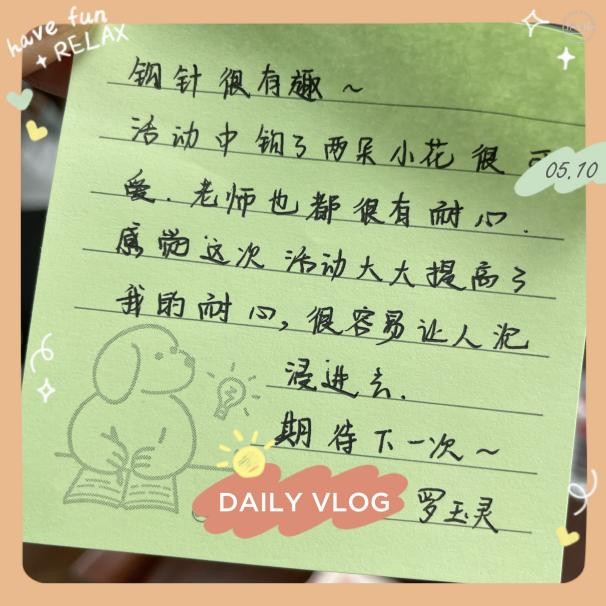 have fun
+ RELAX
钩针很有趣～
活动中钩了两朵小花很可
05.10
爱.老师也都很有耐心.
感觉这次活动大大提高了
我的耐心,很容易让人沉
浸进去.
期待下一次～
DAILY VLOG
罗玉灵